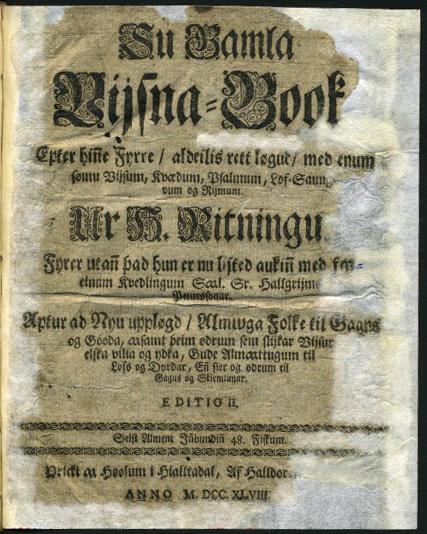 Su Gamla
Vijsna-Book
Epter hiñe Fyrre / aldeilis rett løgud / med enum
sømu Vijsum, Kvædum, Psalmum, Lof-Saung
vum og Rijmum.
Ur H. Ritningu
Fyrer utañ þad hun er nu lijted aukiñ med
einum Kvedlingum Sæl. Sr. Hallgrijms
Peturssonar.
Aptur ad Nyu uppløgd / Almwga Folke til Gagns
og Gooda, ásamt þeim ødrum sem slijkar Vijsur
elska vilia og ydka, Gude Almættugum til
Lofs og Dyrdar, Eñ sier og ødrum til
Gagns og Skiemtunar.
EDITIO II.
Selst Almeñt Jñbundiñ 48. Fiskum.
Þrickt á Hoolum i Hialltadal, Af Halldor
ANNO M. DCC. XLVIII